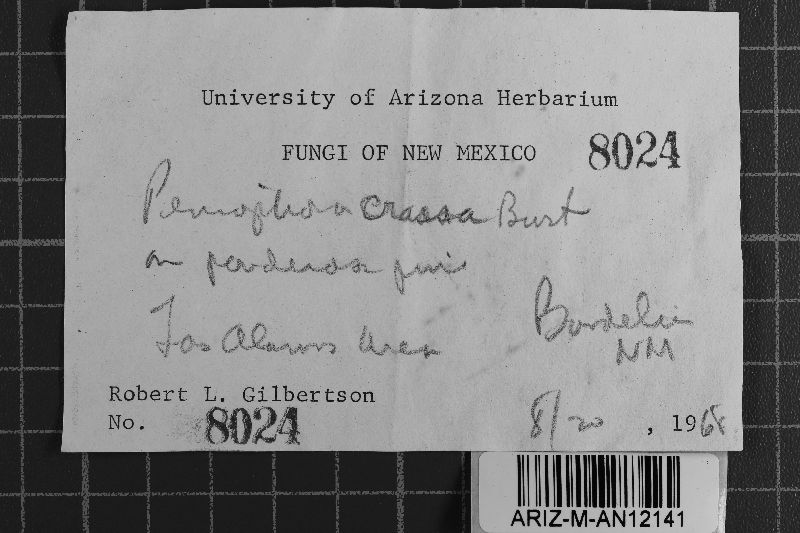 University of Arizona Herbarium
FUNGI OF NEW MEXICO 8024
Peniophora crassa Burt
on ponderosa pine
Los Alamos Area
Bandelier
NM
Robert L. Gilbertson
No. 8024
8/20, 1968
ARIZ-M-AN12141